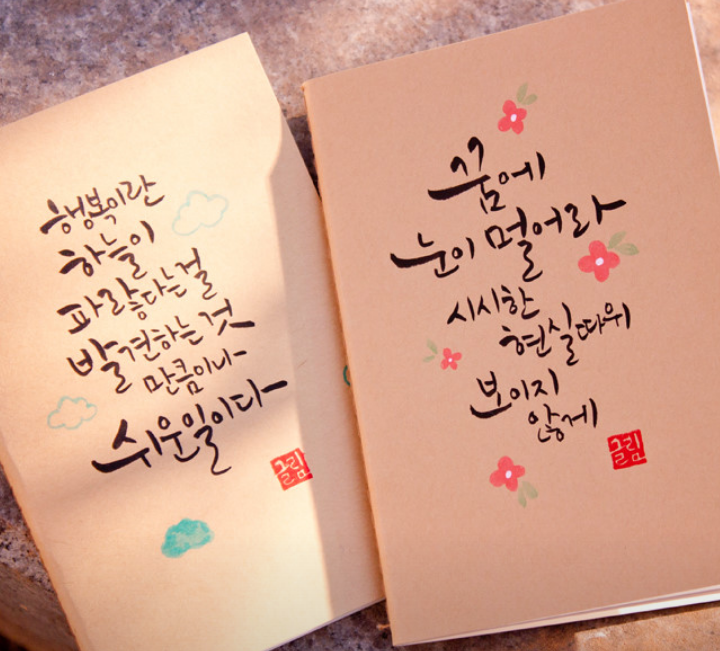 행복이란
하늘이
파랗다는 걸
발견하는 것
만큼이나
쉬운일이다
글림
꿈에
눈이 멀어라
시시한
현실따위
보이지
않게
글림